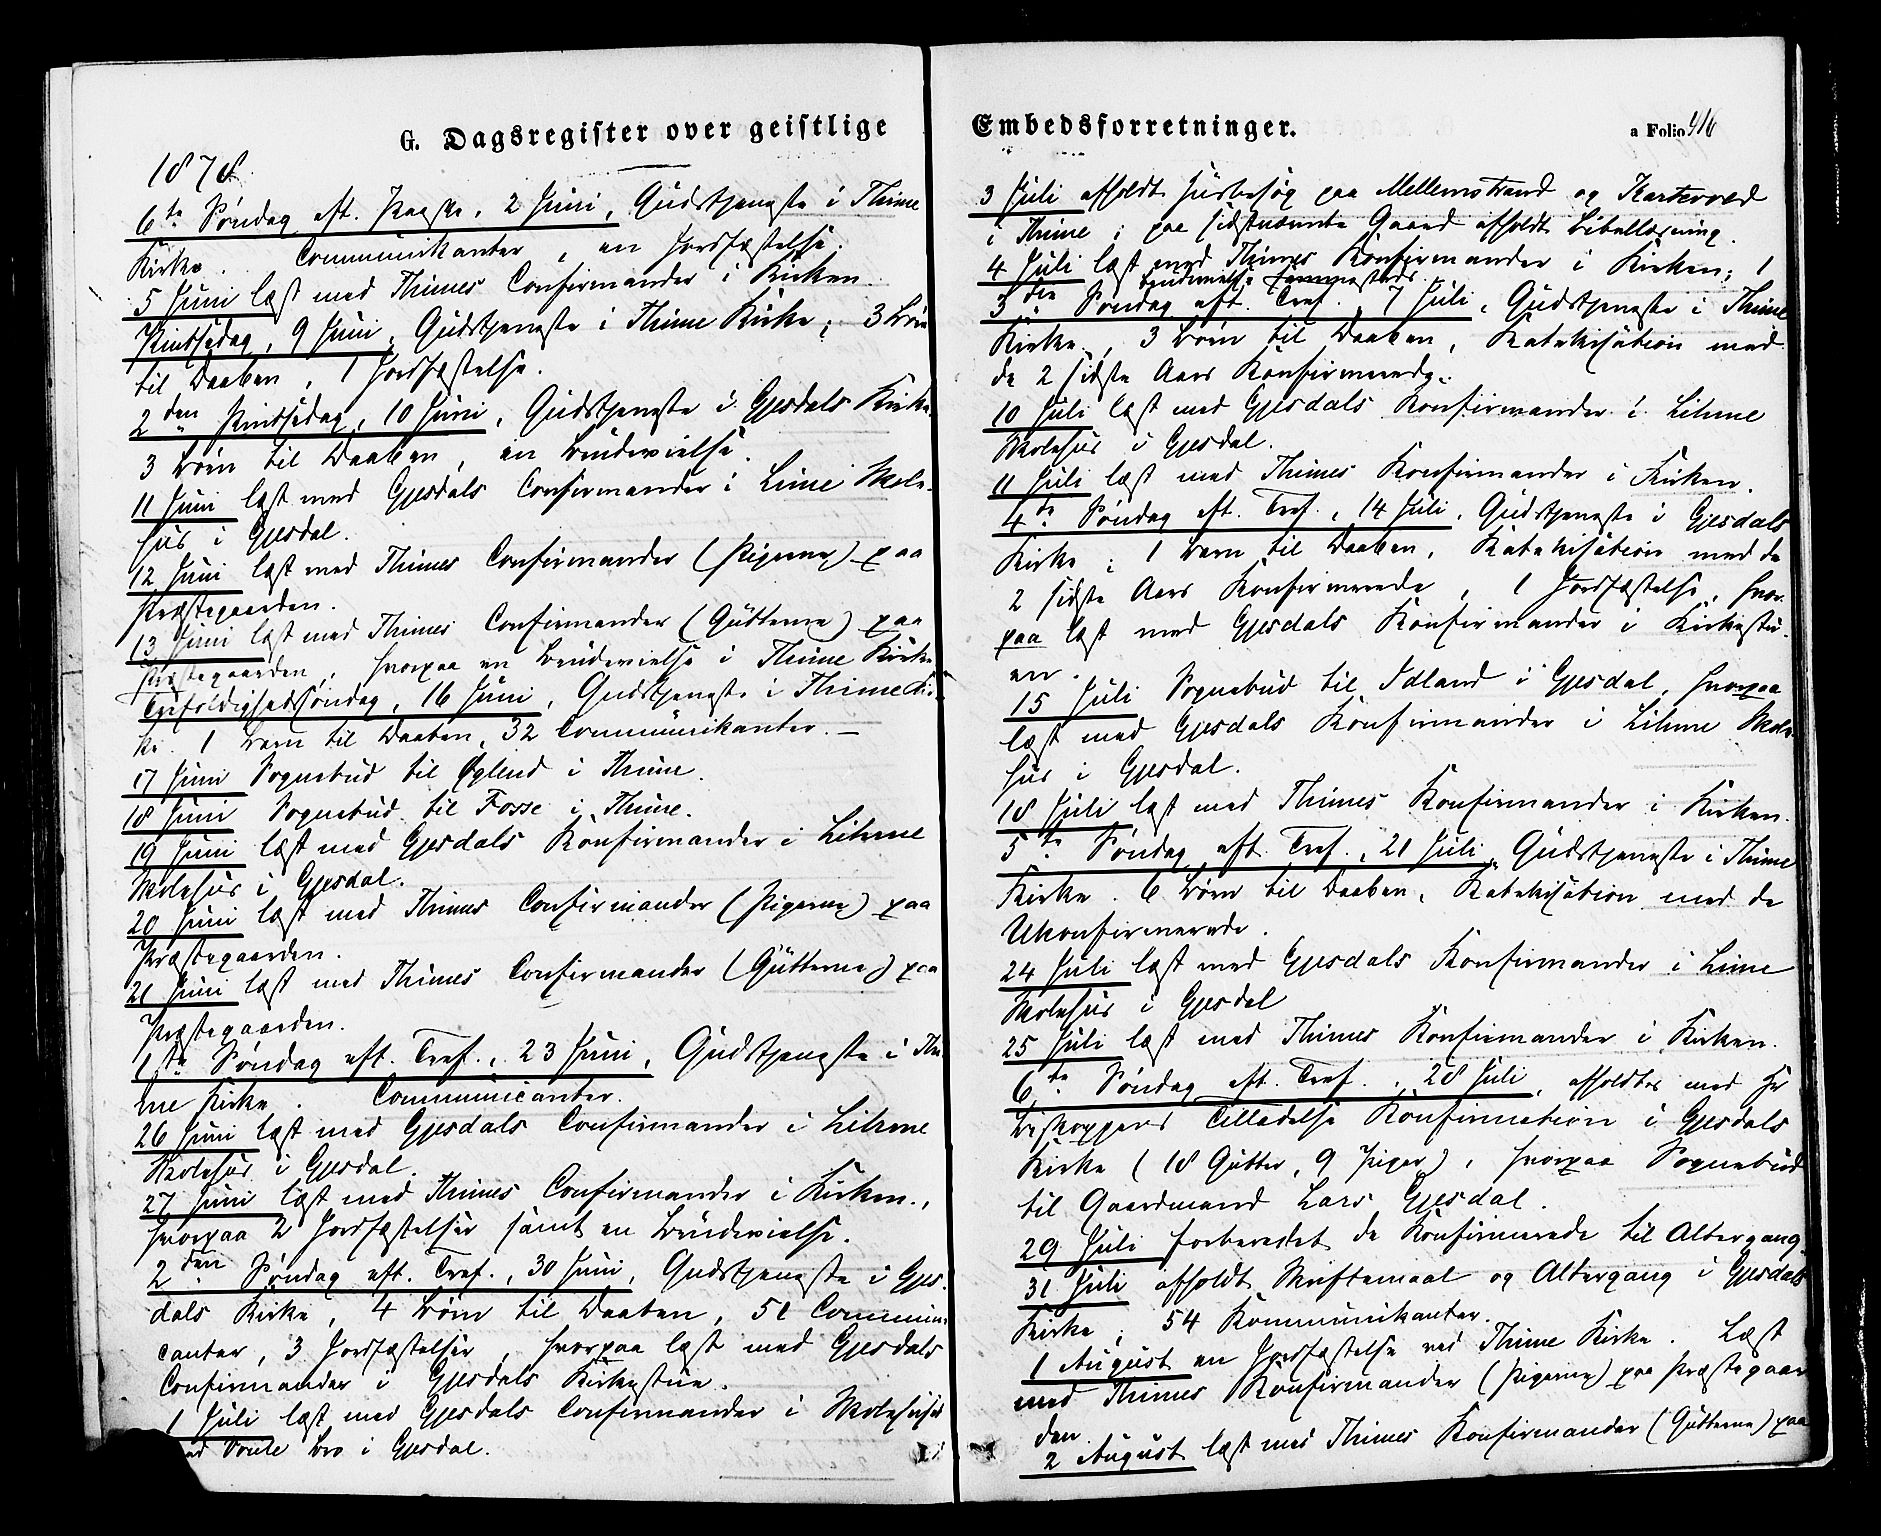 G. Dagsregister over geistlige
1878.
6te Søndag eft. Paaske, 2 Juni, Gudstjeneste i Thime
Kirke. Communikanter, en Jordfæstelse.
5 Juni læst med Thimes Confirmander i Kirken.
Pindsedag, 9 Juni, Gudstjeneste i Thime Kirke; 3 Børn
til Daaben, 1 Jordfæstelse.
2den Pindsedag, 10 Juni, Gudstjeneste i Gjesdals Kirke
3 Børn til Daaben, en Brudevielse.
11 Juni læst med Gjesdals Confirmander i Lime Skole-
hus i Gjesdal.
12 Juni læst med Thimes Confirmander (Pigerne) paa
Præstegaarden.
13 Juni læst med Thimes Confirmander (Gutterne) paa
Præstegaarden, hvorpaa en Brudevielse i Thime Kirke
Trefoldighedssøndag, 16 Juni, Gudstjeneste i Thime Kir-
ke. 1 Barn til Daaben, 32 Communikanter. –
17 Juni Sognebud til Øglend i Thime.
18 Juni Sognebud til Fosse i Thime.
19 Juni læst med Gjesdals Konfirmander i Lihme
Skolehus i Gjesdal.
20 Juni læst med Thimes Confirmander (Pigerne) paa
Præstegaarden.
21 Juni læst med Thimes Confirmander (Gutterne) paa
Præstegaarden.
1ste Søndag eft. Tref., 23 Juni, Gudstjeneste i Thi-
me Kirke. Communicanter.
26 Juni læst med Gjesdals Confirmander i Lihme
Skolehus i Gjesdal.
27 Juni læst med Thimes Confirmander i Kirken.,
hvorpaa 2 Jordfæstelser samt en Brudevielse.
2den Søndag eft. Tref., 30 Juni, Gudstjeneste i Gjes-
dals Kirke, 4 Børn til Daaben, 51 Communi-
canter, 3 Jordfæstelser, hvorpaa læst med Gjesdals
Confirmander i Gjesdals Kirkestue.
1 Juli læst med Gjesdals Confirmander i Skolehuset
Bro i Gjesdal.
Embedsforretninger.
a Folio 416
3 Juli afholdt Husbesøg paa Mellemstrand og Karteved
i Thime; paa sidstnævnte Gaard afholdt Bibellæsning.
4 Juli læst med Thimes Konfirmander i Kirken; 1
Brudevielse sammesteds.
3die Søndag eft. Tref., 7 Juli, Gudstjeneste i Thime
Kirke, 3 Børn til Daaben, Katekisation med
de 2 sidste Aars Konfirmerede.
10 Juli læst med Gjesdals Konfirmander i Lihme
Skolehus i Gjesdal.
11 Juli læst med Thimes Konfirmander i Kirken.
4de Søndag eft. Tref., 14 Juli, Gudstjeneste i Gjesdals
Kirke; 1 Barn til Daaben, Katekisation med de
2 sidste Aars Konfirmerede, 1 Jordfæstelse, hvor-
paa læst med Gjesdals Konfirmander i Kirkestu-
en.
15 Juli Sognebud til Idland i Gjesdal, hvorpaa
læst med Gjesdals Konfirmander i Lihme Skole-
hus i Gjesdal.
18 Juli læst med Thimes Konfirmander i Kirken.
5te Søndag eft. Tref., 21 Juli, Gudstjeneste i Thime
Kirke. 6 Børn til Daaben, Katekisation med de
Ukonfirmerede.
24 Juli læst med Gjesdals Konfirmander i Lime
Skolehus i Gjesdal
25 Juli læst med Thimes Konfirmander i Kirken.
6te Søndag eft. Tref., 28 Juli, afholdtes med Hr
Biskoppens Tilladelse Konfirmation i Gjesdals
Kirke (18 Gutter, 9 Piger), hvorpaa Sognebud
til Gaardmand Lars Gjesdal.
29 Juli forberedet de Konfirmerede til Altergang.
31 Juli afholdt Skriftemaal og Altergang i Gjesdals
Kirke; 54 Kommunikanter.
1 August en Jordfæstelse ved Thime Kirke. Læst
med Thimes Konfirmander (Pigerne) paa Præstegaar-
den
2 August læst med Thimes Konfirmander (Gutterne) paa